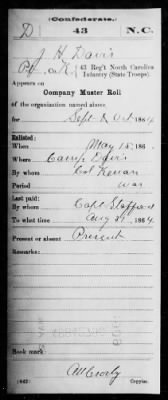 (Confederate.)
D 43 N.C.
J H Davis
Pvt, Co. K, 43 Reg't North Carolina
Infantry (State Troops).
Appears on
Company Muster Roll
of the organization named above
for Sept & Oct, 1864
Enlisted:
When May 15, 186
Where Camp Davis
By whom Col Kenan
Period war
Last paid:
By whom Capt Stafford
To what time Aug 31, 1864
Present or absent Present
Remarks:
Book mark:
(642) Copyist.